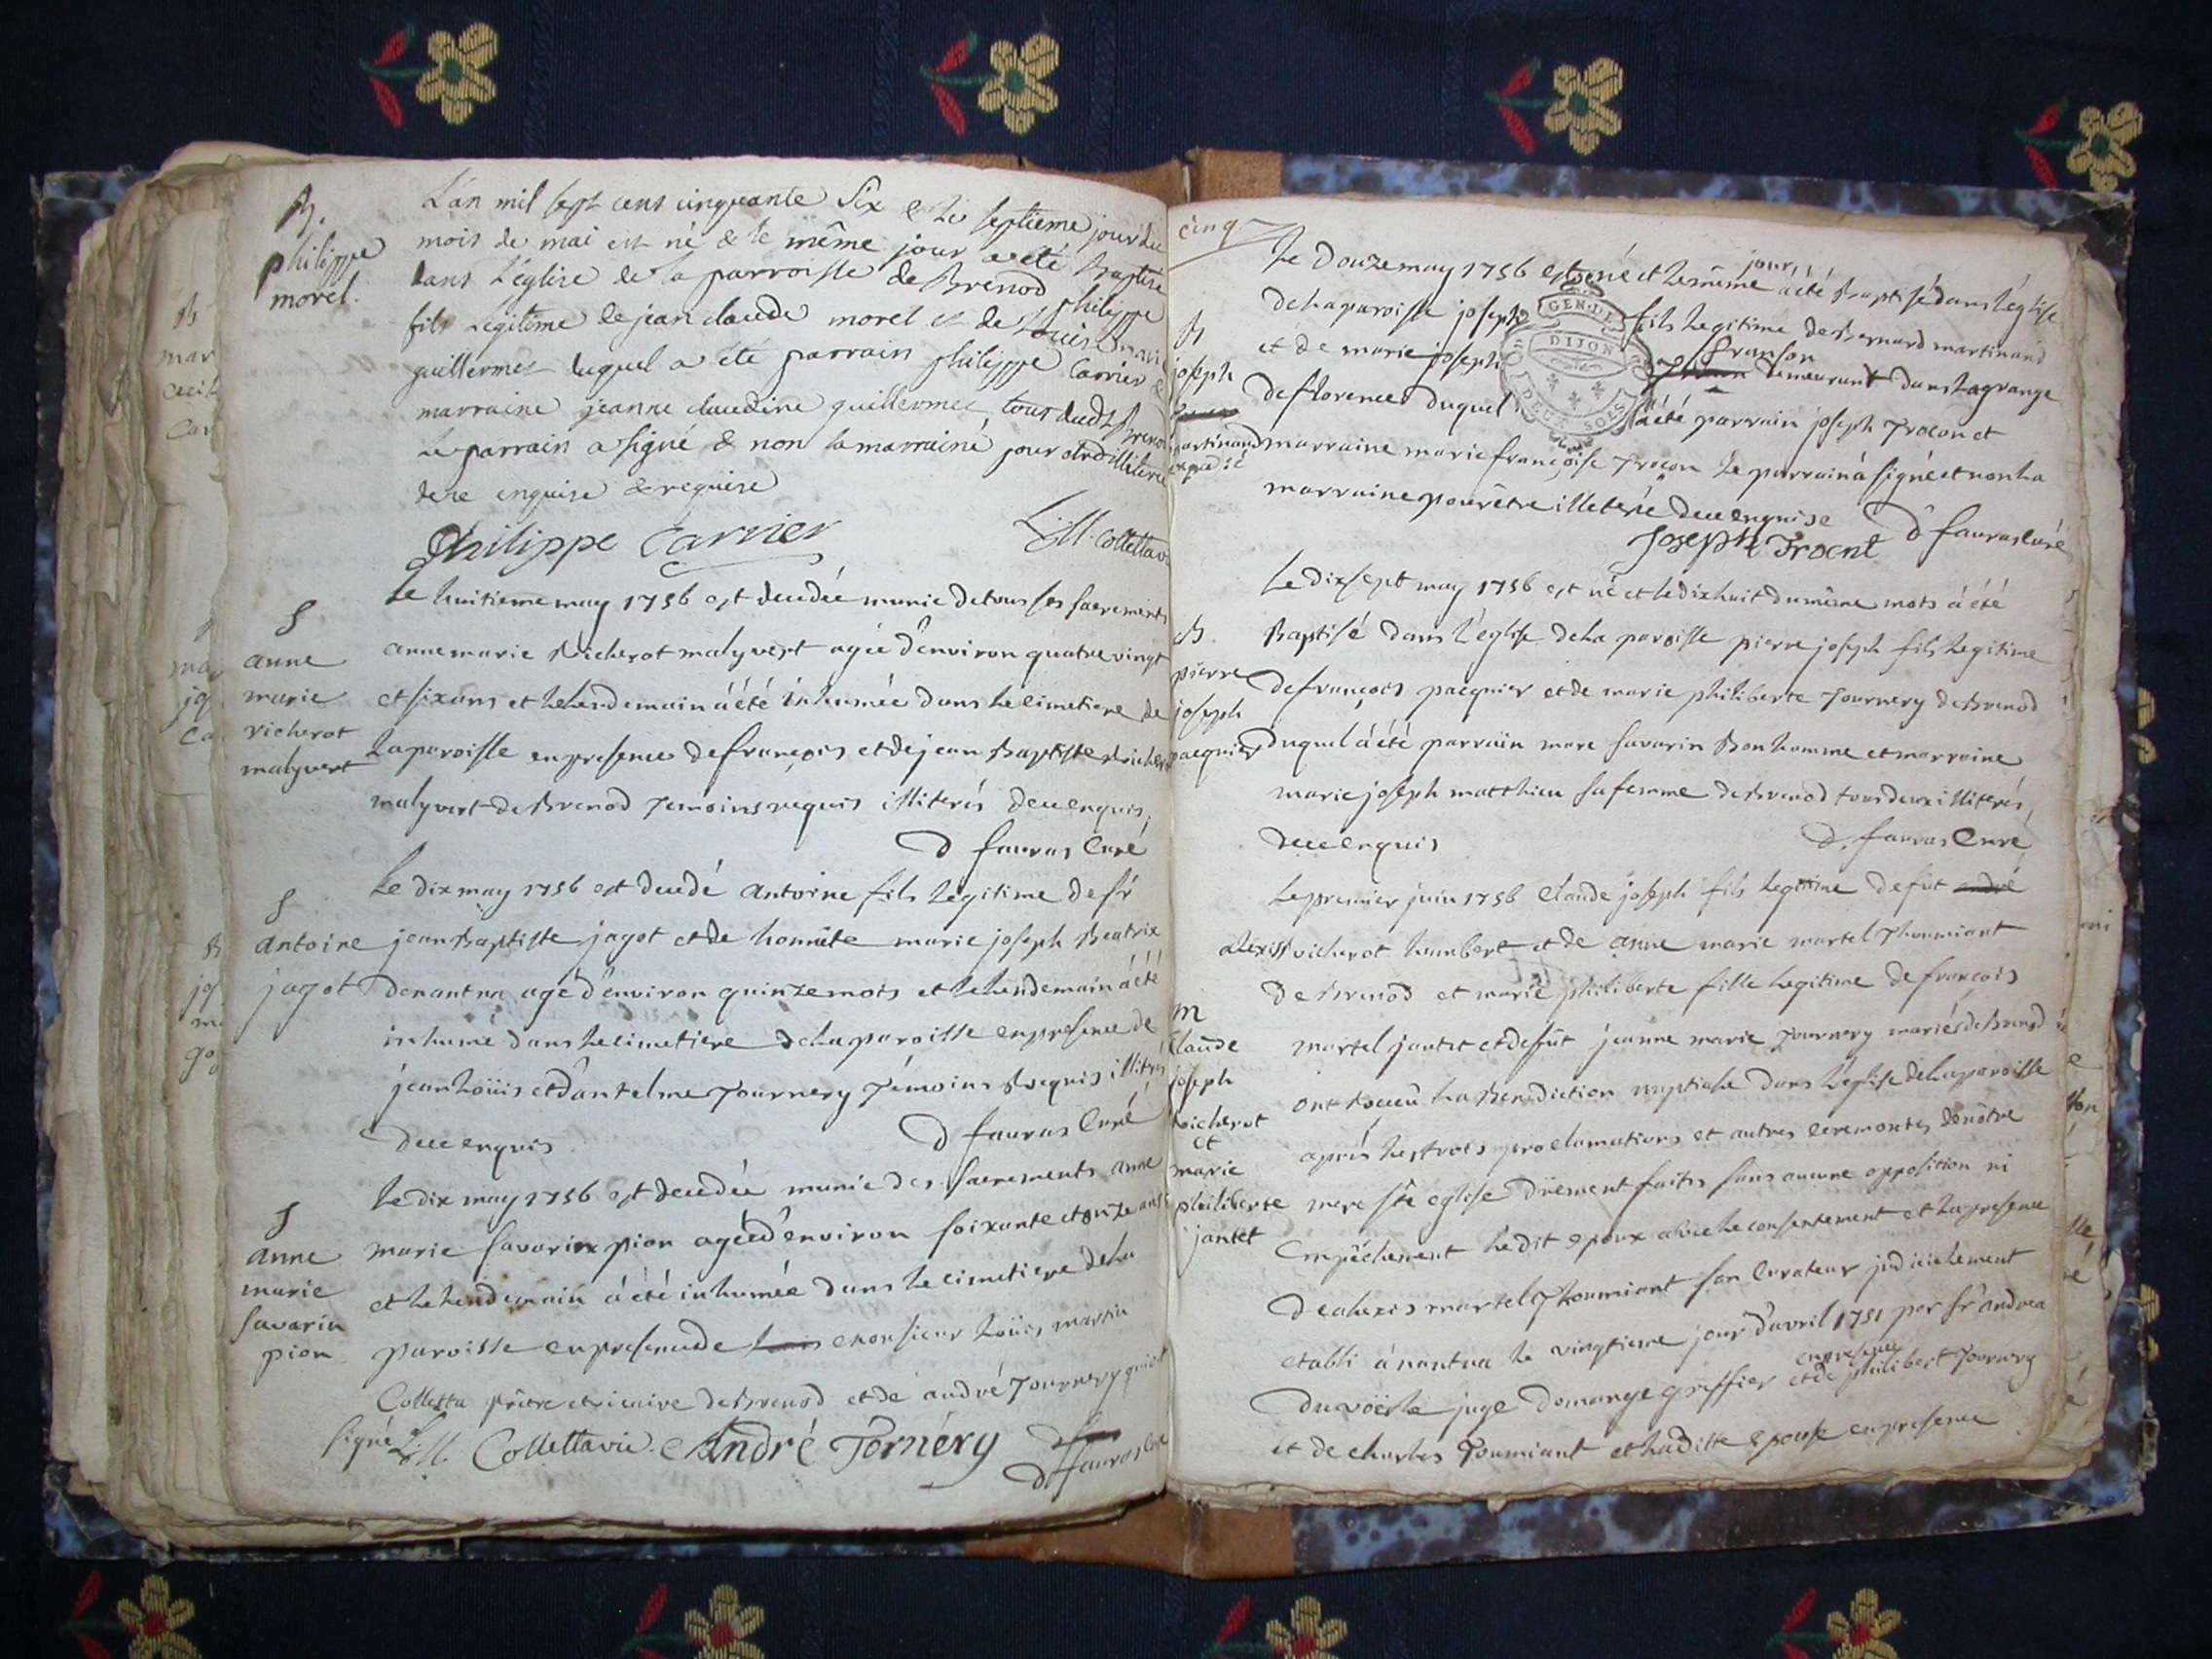 B.
philippe
morel.
L'an mil sept cens cinquante Six & le septieme jour du
mois de mai est né & le même jour a eté Baptisé
dans l'église de la parroisse de Brenod philippe
fils Legitime de jean claude morel et de Louise marie
guillermet duquel a été parrain philippe Carrier &
marraine jeanne claudine guillermet tous deux de Brenod
Le parrain a signé & non la marraine pour être illiterée
de ce enquise & requise
Philippe Carrier L:M: Collettavic
S
anne
marie
richerot
malyvert
Le huitieme may 1756 est decedée munie de tous ses sacrements
anne marie Richerot malyvert agée d'environ quatre vingt
et six ans et le lendemain á été inhumée dans le cimetiere de
la paroisse en presence de françois et de jean Baptiste Richerot
malyvert de Brenod temoins requis illiterés de ce enquis,
D fauras Curé
S
antoine
jagot
Le dix may 1756 est decedé antoine fils legitime de sr
jean Baptiste jagot et de honnête marie joseph Beatrix
de nantua agé d'environ quinze mois et le lendemain á été
inhumé dans le cimetiere de la paroisse en presence de
jean Loüis et d'antelme Tournery Témoins Requis illiterés
de ce enquis D fauras Curé
S
anne
marie
savarin
pion
Le dix may 1756 est decedée munie des sacrements anne
marie savarin pion agée d'environ soixante et onze ans
et le lendemain á été inhumée dans le cimetiere de la
paroisse en presence de monsieur Loüis martin
Colletta prêtre et vicaire de Brenod et de andré Tournery qui ont
signé L:M. Collettavic. André Tornéry
D fauras Curé
cinq
B
joseph
martinand
expedié
Le Douze may 1756 est né et le même jour á été Baptisé dans l'église
de la paroisse joseph fils legitime de Bernard martinand
et de marie joseph franson demeurant dans la grange
de florence duquel á été parrain joseph Trocon et
marraine marie françoise Trocon le parrain á signé et non la
marraine pour être illeterée de ce enquise D fauras Curé
Joseph Trocnt
GEN. DI
DIJON
DEUX SOLS
B.
pierre
joseph
pacquier
Le dix sept may 1756 est né et le dix huit du même mois á été
Baptisé dans l'église de la paroisse pierre joseph fils legitime
de françois pacquier et de marie philiberte Tournery de Brenod
duquel á été parrain marc savarin Bonhomme et marraine
marie joseph matthieu sa femme de Brenod tous deux illiterés,
de ce enquis D. fauras Curé
m
Claude
joseph
Richerot
et
marie
philiberte
jantet
Le premier juin 1756 Claude joseph fils legitime de fut andré
alexis Richerot humbert et de anne marie martel Thoumiant
de Brenod et marie philiberte fille legitime de françois
martel jantet et de fût jeanne marie Tournery mariés de Brenod
ont Receu la Benediction nuptiale dans l'église de la paroisse
aprés les trois proclamations et autres ceremonies de nôtre
mere ste eglise dûement faites sans aucune opposition ni
empêchement ledit epoux avec le consentement et la presence
de alexis martel Thoumiant son Curateur judicielement
etabli á nantua le vingtieme jour d'avril 1751 par sr andrea
juge Domange greffier en presence et de philibert Tournery
et de charles Toumiant et la ditte epouse en presence